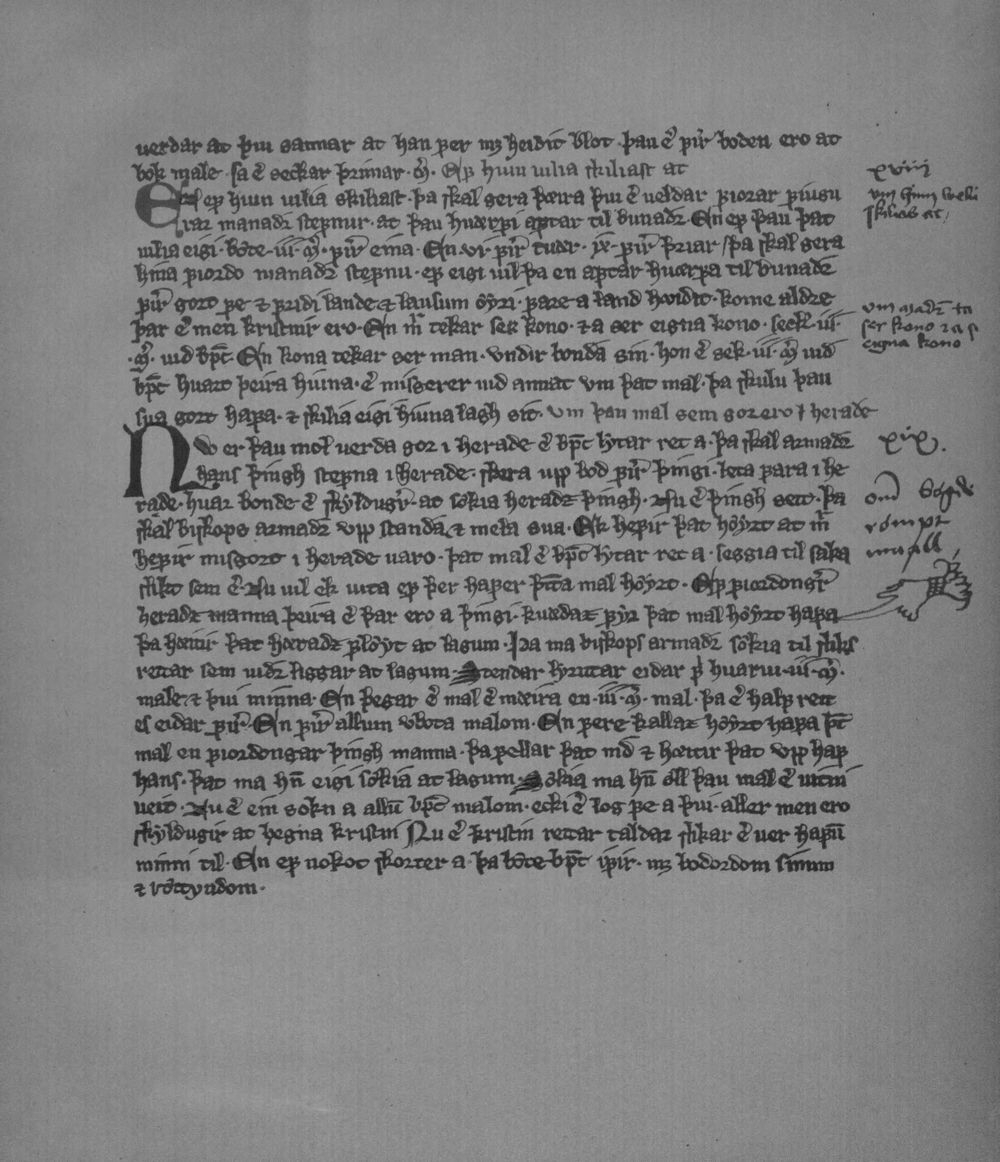 uerdar at þui sannar at han ꝼer mꝫ heidit blot þau ẽ ꝼir̃ boden ero at
bok male · sa ẽ seckar þrimar · m̃ · Eꝼ hiun uilia skiliast at
eꝼ hiun uilia skiliast · þa skal gera þæira þui ẽ ueldar ꝼiorar ꝼiugu
rar manadr steꝼnur · at þau huerꝼi aꝼtar til bunadr · En eꝼ þau þat
uilia eigi · böte · iii · m̃ · ꝼir̃ eina · En vi · ꝼir̃ tuær · ix · ꝼir̃ þriar / þa skal gera
hina ꝼiordo manadr steꝼnu · eꝼ eigi uil þa en aꝼtar huærꝼa til bunadr
ꝼir̃ gort ꝼe ⁊ ꝼridi lande ⁊ lausum öyri · ꝼare a land hæidit · kome aldre
þar ẽ men kristnir ero · En m̃ tekar ser kono · ⁊ a ser eigna kono · seck · iii ·
· m̃ · uid bp̃t · En kona tekar ser man · vndir bonda sin · hon ẽ sek · iii · m̃ uid
bp̃t huart þeira hiuna · ẽ misgerer uid annat vm þat mal · þa skulu þau
sua gort haꝼa · ⁊ skilia eigi hiuna lagh sit · vm þau mal sem gor ero i herade
Nv er þau mol uerda gor i herade ẽ bp̃t lytar ret a · þa skal armadr
hans þingh steꝼna i herade · skera upp bod ꝼir̃ þingi · leta ꝼara i he
rade · huar bonde ẽ skyldugr̃ · at sökia heradz þingh · Nu ẽ þingh sett · þa
skal biskops armadr upp standa ⁊ mela sua · Ek heꝼir þat höyrt at m̃
heꝼir misgort i herade uaro · þat mal ẽ bp̃t lytar ret a · seggia til saka
slikt sem ẽ · Nu uil ek uita eꝼ þer haꝼer þetta mal höyrt · Eꝼ ꝼiordongr̃
heradz manna þeira ẽ þar ero a þingi · kuedaz ꝼyr þat mal höyrt haꝼa
þa hæitir þat hæradz ꝼlöyt at lagum · Þa ma biskops armadr sökia til sliks
rettar sem uidr liggar at lagum · Stendar lyrittar eidar ꝼ huarui · iii · m̃ ·
male ⁊ þui minna · En þegar ẽ mal ẽ mæira en · iii · m̃ · mal · þa ẽ halꝼ rett
es eidar ꝼir̃ · En ꝼir̃ allum vbota malom · En ꝼere kallaz höyrt haꝼa þt̃
mal en ꝼiordongar þingh manna · þa ꝼellar þat nid ⁊ hæitir þat upp haꝼ
hans · þat ma hñ eigi sökia at lagum · Sökia ma hñ öll þau mal ẽ uitni
ueit · Nu ẽ ein sökn a allũ bp̃t malom · ecki ẽ log ꝼe a þui · aller men ero
skyldugir at hegna kristin Nu ẽ kristin rettar taldar slikar ẽ uer haꝼũ
minni til · En eꝼ nokot skorter a · þa böte bp̃t ip̃ir · mꝫ bodordom sinum
⁊ rættyndom ·
xviii
vm hiun wili
skilias at /
vm madr ta
ser kono ⁊ a s
eigna kono
xix.